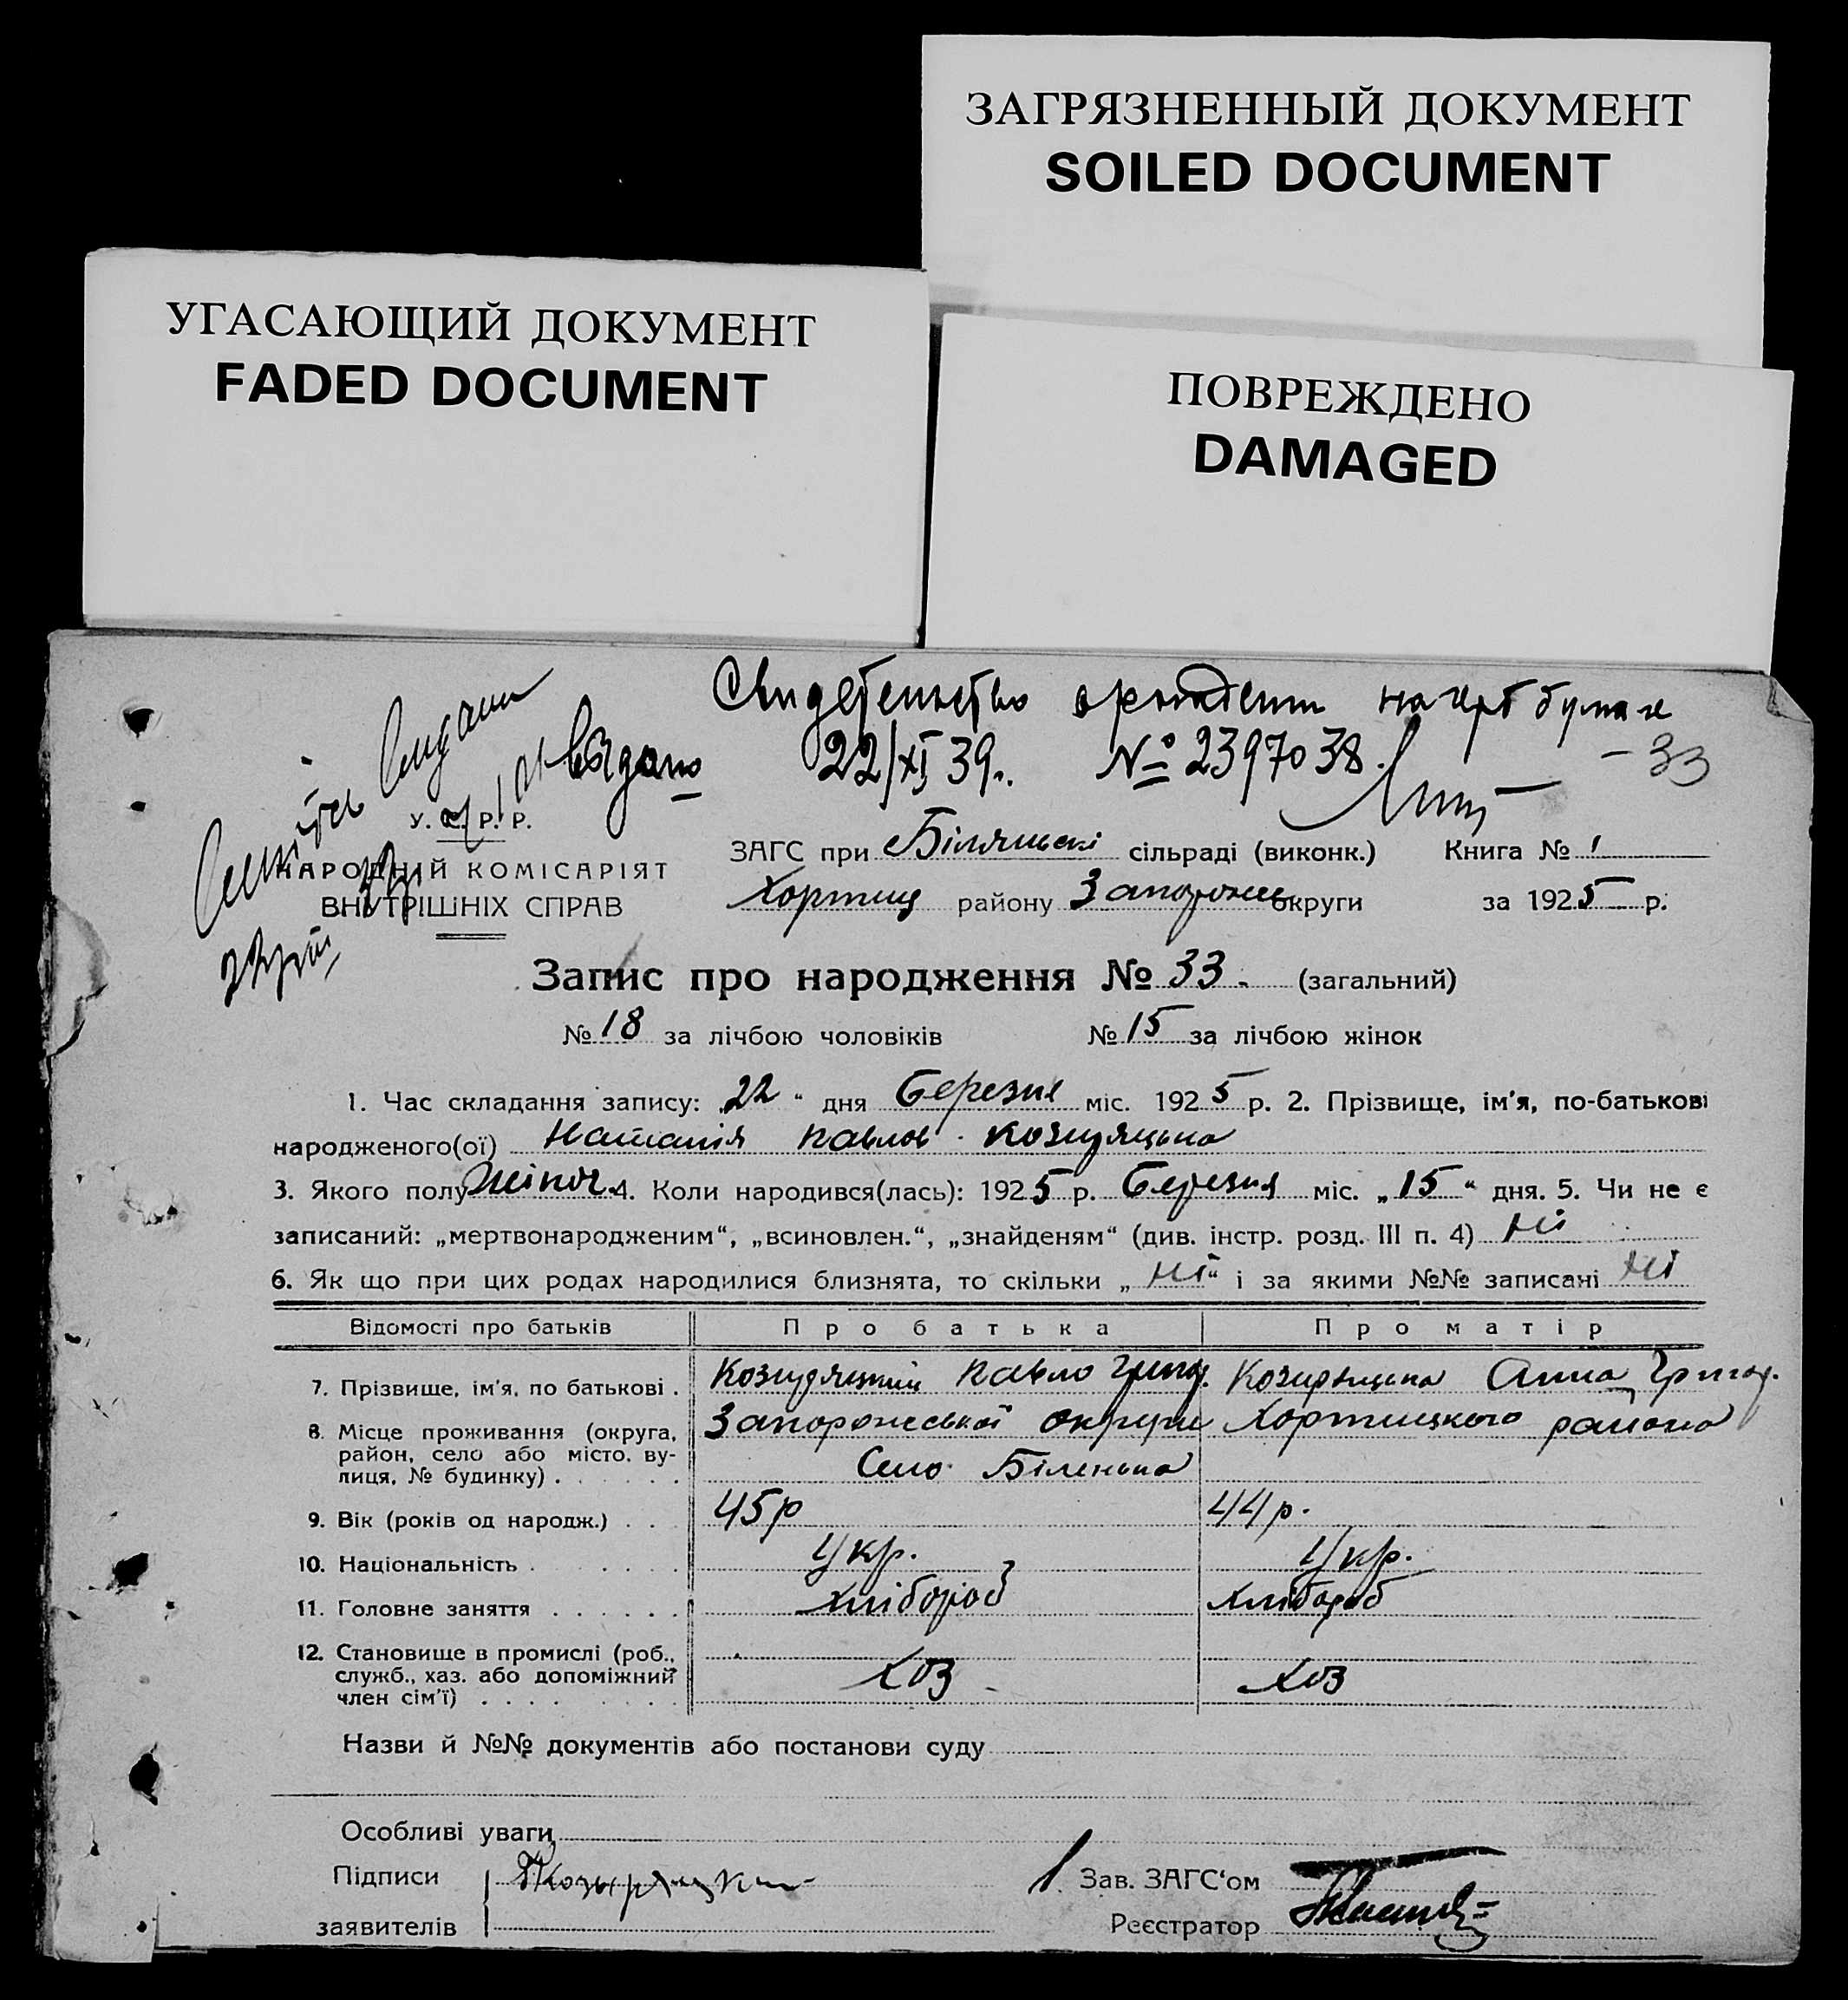 ЗАГРЯЗНЕННЫЙ ДОКУМЕНТ
SOILED DOCUMENT
УГАСАЮЩИЙ ДОКУМЕНТ
FADED DOCUMENT
ПОВРЕЖДЕНО
DAMAGED
Свидетельство о рождении на герб бумаге
выдано 22/XI 39г. № 2397038.
- 33
У. С. Р. Р.
НАРОДНІЙ КОМІСАРІЯТ
ВНУТРІШНІХ СПРАВ
ЗАГС при сільраді (виконк.) Книга № 1
Хортиц району Запорожс округи за 1925 р.
Запис про народження № 33. (загальний)
№ 18 за лічбою чоловіків № 15 за лічбою жінок
1. Час складання запису: „22“ дня Березня міс. 1925 р. 2. Прізвище, ім'я, по-батькові
народженого(ої) Наталія Павлов. Козиряцька
3. Якого полу Жіноч. 4. Коли народився(лась): 1925 р. Березня міс. „15“ дня. 5. Чи не є
записаний: „мертвонародженим“, „всиновлен.“, „знайденям“ (див. інстр. розд. III п. 4) Ні
6. Як що при цих родах народилися близнята, то скільки „Ні“ і за якими №№ записані Ні
Відомості про батьків Про батька Про матір
7. Прізвище, ім'я, по батькові . Козиряцький Павло Григ. Козиряцька Анна Григор.
8. Місце проживання (округа, район, село або місто, вулиця, № будинку) . Запорожської округи Хортицького района
Село Біленька
9. Вік (років од народж.) . . 45р 44р.
10. Національність . Укр. Укр.
11. Головне заняття . . . . . . Хлібороб Хлібороб
12. Становище в промислі (роб.,
служб., хаз. або допоміжний
член сім'ї) . . . . Хоз Хоз
Назви й №№ документів або постанови суду
Особливі уваги
Підписи Козыряцкий Зав. ЗАГС'ом
заявителів Реєстратор